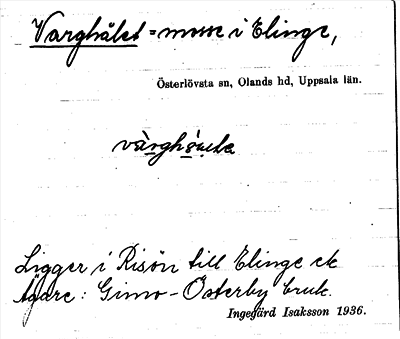 Varghålet = mosse i Elinge,
Österlövsta sn, Olands hd, Uppsala län.
Ligger i Risön till Elinge ek
Ägare: Gimo-Österby bruk.
Ingegärd Isaksson 1936.